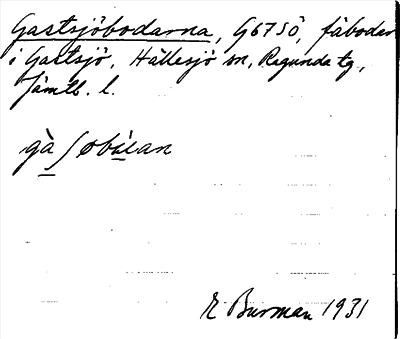 Gastsjöbodarna, G67SÖ, fäbodar
i Gastsjö, Hällesjö sn, Ragunda tg,
Jämtl. l.
gà ʃøbùan
E Burman 1931